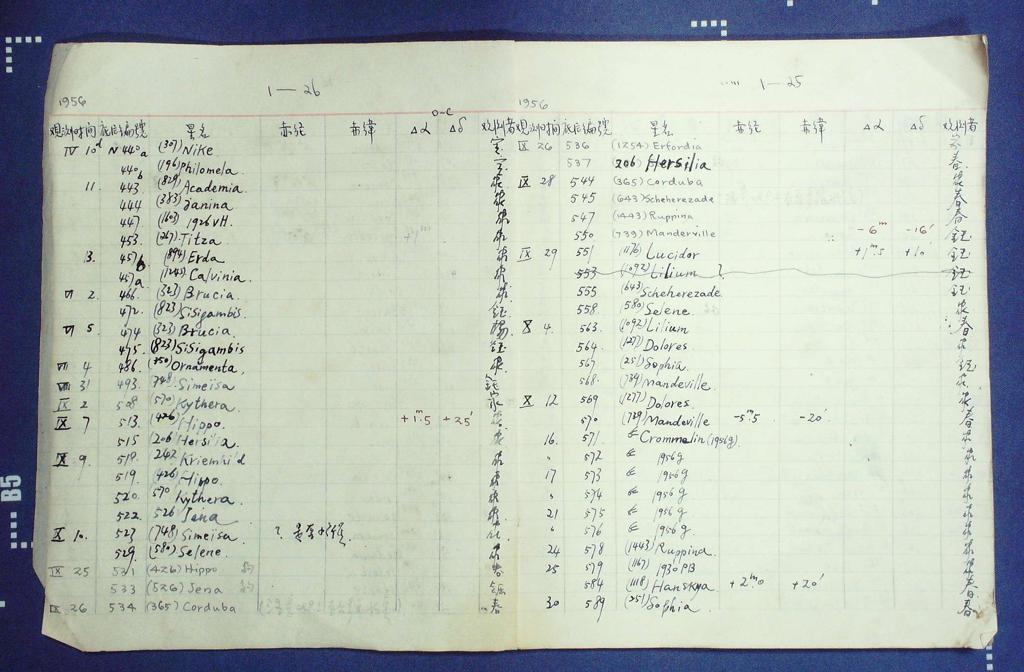 1956
1—26
O-C
观测时间 底片编號 星名 赤经 赤緯 Δα Δδ 观测者
IV 10d N 440a (307) Nike
440b (196) Philomela
11. 443 (829) Academia
444 (383) Janina
447 (1603) 1926VH
453 (267) Titza +1m
13. 457b (894) Erda
457a (1245) Calvinia
VI 2. 466. (323) Brucia
472. (823) Sisigambis 鈺
VI 5. 474 (323) Brucia
475. (823) Sisigambis 鈺
VII 4 486. (350) Ornamenta
VIII 31 493. (748) Simeisa
IX 2 508 (570) Kythera 家
IX 7 513. (426) Hippo. +1m.5 +25′
515 (206) Hersilia
IX 9. 518. 242 Kriemhild
519. (426) Hippo
520. 570 Kythera
522. 526 Jena
IX 10. 523 (748) Simeisa ?
529. (580) Selene
IX 25 531 (426) Hippo
533 (526) Jena
IX 26 534 (365) Corduba 春
1956
1—25
观测时间 底片编號 星名 赤经 赤緯 Δα Δδ 观测者
IX 26 536 (1254) Erfordia 家
537 206 Hersilia 春
IX 28 544 (365) Corduba
545 (643) Scheherezade 春
547 (1443) Ruppina 春
550 (739) Manderville -6m -16′ 鈺
IX 29 551 (1176) Lucidor +1m.5 +10 鈺
553 (1092) Lilium ? 鈺
555 (643) Scheherezade 鈺
558. (580) Selene
X 4. 563. (1092) Lilium 春
564. (1277) Dolores
567 (251) Sophia 鈺
568. (739) Mandeville
X 12 569 (1277) Dolores
570 (739) Mandeville -5m.5 -20′ 春
16. 571. Crommelin (1956g)
" 572 1956g
17 573 1956g
" 574 1956g
21 575 1956g
" 576 1956g
24 578 (1443) Ruppina
25 579 (1167) 1930PB
584 (1118) Hanskya +2m.0 +20′ 春
30 589 (251) Sophia 春
B5